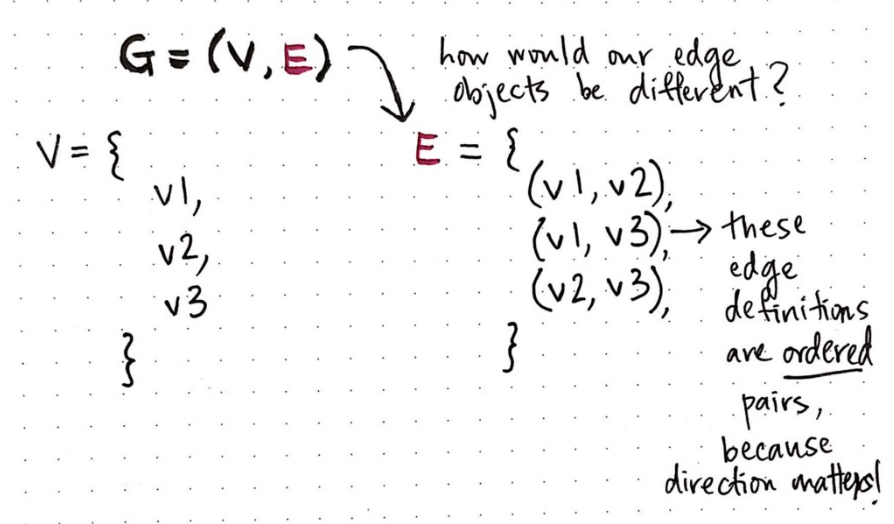 G = (V, E)
how would our edge
objects be different?
V = {
v1,
v2,
v3
}
E = {
(v1, v2),
(v1, v3),
(v2, v3),
}
→ these
edge
definitions
are ordered
pairs,
because
direction matters!